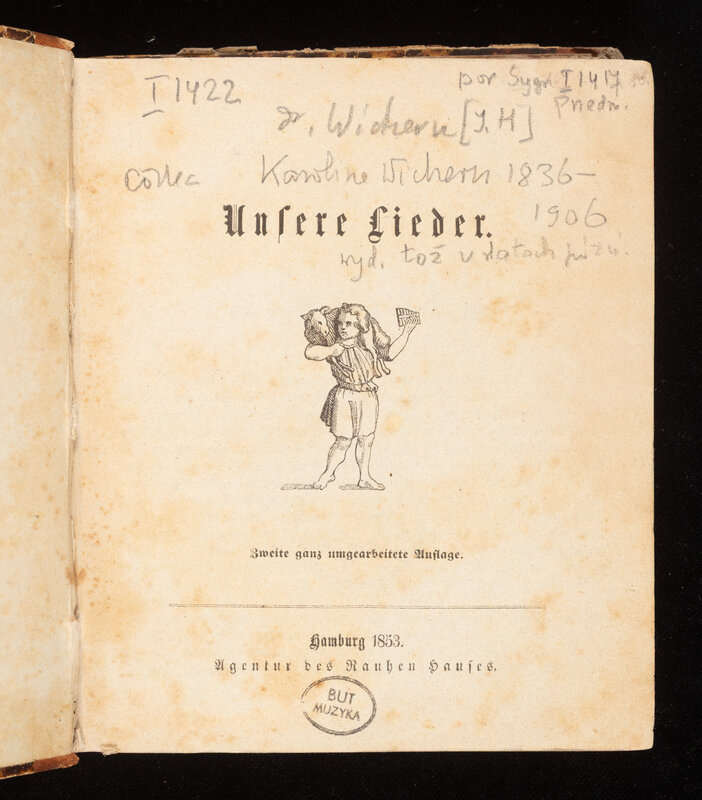 I 1422
por. Sygn. I 1417
Przedm.
Dr. Wichern [J. H]
córka Karoline Wichern 1836–
1906
Unsere Lieder.
wyd. też v
Zweite ganz umgearbeitete Auflage.
Hamburg 1853.
Agentur des Rauhen Hauses.
BUT
MUZYKA